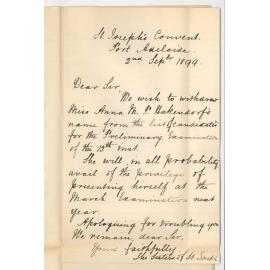 St Joseph's Convent.
Port Adelaide
2nd Septbr 1899.
Dear Sir,
We wish to withdraw
Miss Anna M. P. Hakendorf's
name from the list (candidates
for the Preliminary Examination
of the 13th inst.
She will, in all probability
avail of the privilege of
presenting herself at the
March Examination next
year.
Apologising for troubling you
We remain, dear Sir,
Yours faithfully
The Sisters of St. Joseph